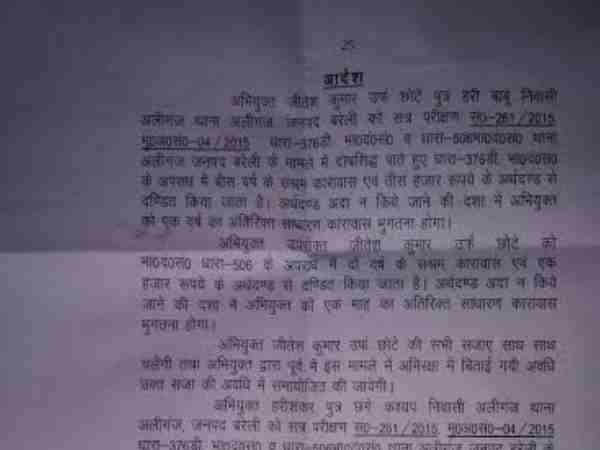 25
आदेश
अभियुक्त जीतेश कुमार उर्फ छोटे पुत्र हरी बाबू निवासी
अलीगंज थाना अलीगंज, जनपद बरेली को सत्र परीक्षण स0-261/2015,
मु0अ0स0-04/2015 धारा-376डी भा0द0स0 व धारा-506भा0द0स0 थाना
अलीगंज जनपद बरेली के मामले में दोषसिद्ध पाते हुए धारा-376डी. भा0द0स0
के अपराध में बीस वर्ष के सश्रम कारावास एवं तीस हजार रूपये के अर्थदण्ड से
दण्डित किया जाता है। अर्थदण्ड अदा न किये जाने की दशा में अभियुक्त
को एक वर्ष का अतिरिक्त साधारण कारावास भुगतना होगा।
अभियुक्त उपरोक्त जीतेश कुमार उर्फ छोटे को
भा0द0स0 धारा-506 के अपराध में दो वर्ष के सश्रम कारावास एवं एक
हजार रूपये के अर्थदण्ड से दण्डित किया जाता है। अर्थदण्ड अदा न किये
जाने की दशा में अभियुक्त को एक माह का अतिरिक्त साधारण कारावास
भुगतना होगा।
अभियुक्त जीतेश कुमार उर्फ छोटे की सभी सजाए साथ साथ
चलेंगी तथा अभियुक्त द्वारा पूर्व में इस मामले में अभिरक्षा में बिताई गयी अवधि
उक्त सजा की अवधि में समायोजित की जायेगी।
अभियुक्त हरीशंकर पुत्र छंगे कश्यप निवासी अलीगंज थाना
अलीगंज, जनपद बरेली को सत्र परीक्षण स0-261/2015, मु0अ0स0-04/2015
धारा-376डी, भा0द0स0 व धारा-506भा0द0स0 थाना अलीगंज जनपद बरेली के